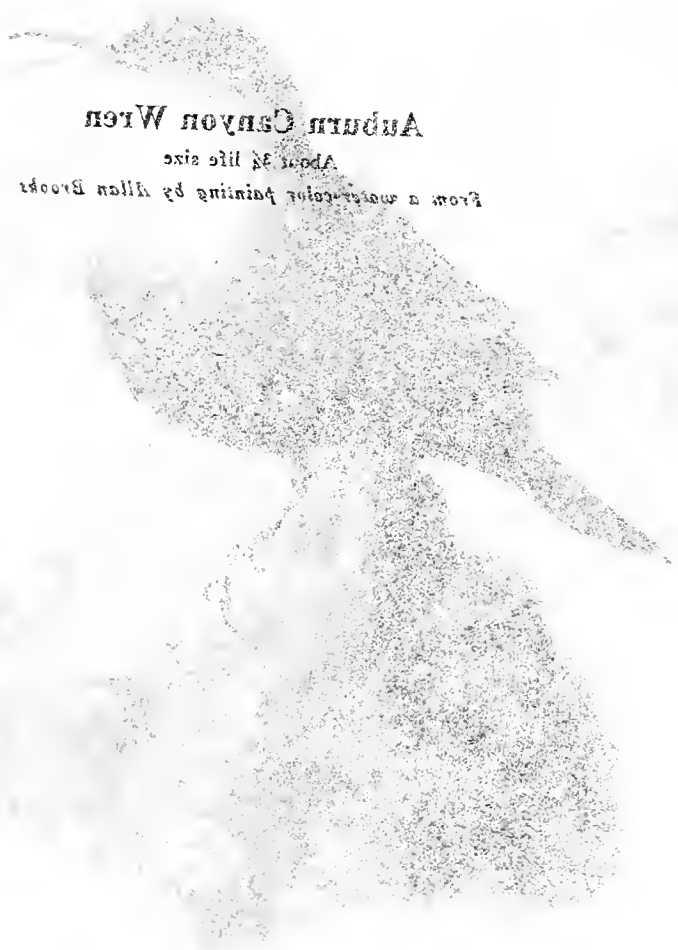 Auburn Canyon Wren
About ¾ life size
From a water-color painting by Allan Brooks